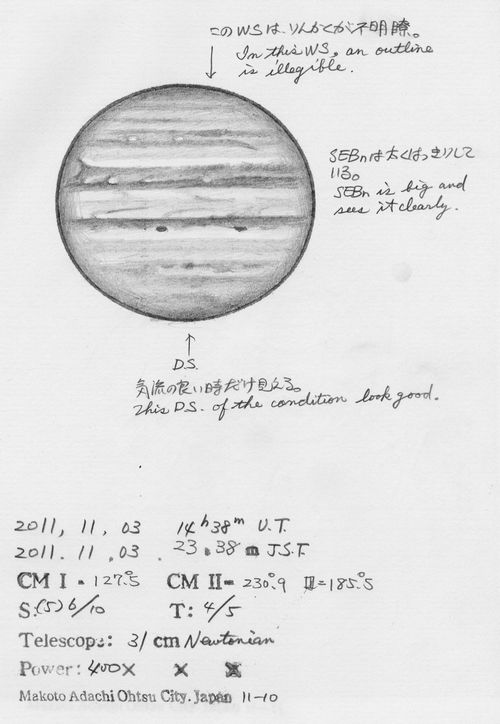 このWSは、りんかくが不明瞭。
In this WS, an outline
is illegible.
SEBnは太くはっきりして
いる。
SEBn is big and
sees it clearly.
D.S.
気流の良い時だけ見える。
This D.S. of the condition look good.
2011, 11, 03 14h38m U.T.
2011. 11. 03. 23.38m J.S.T.
CM I = 127.°5 CM II= 230.°9 III=185.°5
S:(5)6/10 T: 4/5
Telescope: 31 cm Newtonian
Power: 400× × ×
Makoto Adachi Ohtsu City. Japan 11-10